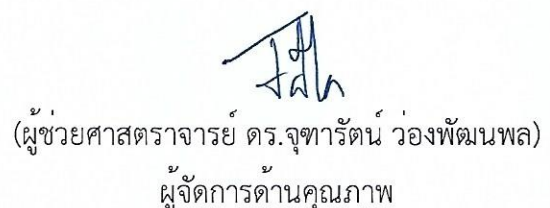 (ผู้ช่วยศาสตราจารย์ ดร.จุฑารัตน์ ว่องพัฒนพล)
ผู้จัดการด้านคุณภาพ